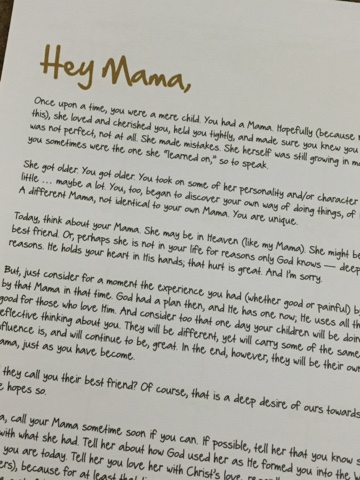 Hey Mama,
Once upon a time, you were a mere child. You had a Mama. Hopefully (because
this), she loved and cherished you, held you tightly, and made sure you knew you
was not perfect, not at all. She made mistakes. She herself was still growing in
you sometimes were the one she "learned on," so to speak.
She got older. You got older. You took on some of her personality and/or character
little ... maybe a lot. You, too, began to discover your own way of doing things, of
A different Mama, not identical to your own Mama. You are unique.
Today, think about your Mama. She may be in Heaven (like my Mama). She might be
best friend. Or, perhaps she is not in your life for reasons only God knows — deep
reasons. He holds your heart in His hands; that hurt is great. And I'm sorry.
But, just consider for a moment the experience you had (whether good or painful)
by that Mama in that time. God had a plan then, and He has one now; He uses all
good for those who love Him. And consider too that one day your children will be doing
eflective thinking about you. They will be different, yet will carry some of the same
fluence is, and will continue to be, great. In the end, however, they will be their own
ama, just as you have become.
they call you their best friend? Of course, that is a deep desire of ours towards
e hopes so.
a, call your Mama sometime soon if you can. If possible, tell her that you know
with what she had. Tell her about how God used her as He formed you into the
you are today. Tell her you love her with Christ's love,
ers), because for at least that